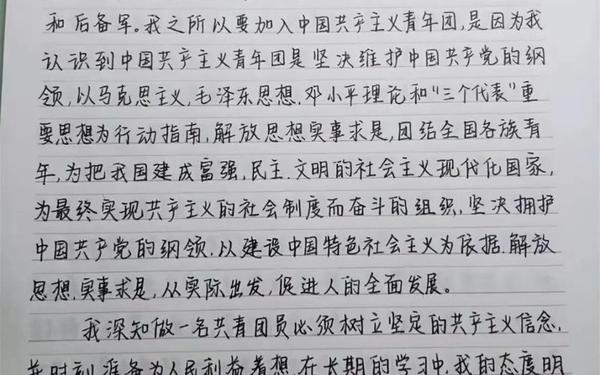 和后备军。我之所以要加入中国共产主义青年团,是因为我
认识到中国共产主义青年团是坚决维护中国共产党的纲
领,以马克思主义,毛泽东思想.邓小平理论和“三个代表”重
要思想为行动指南,解放思想实事求是,团结全国各族青
年,为把我国建成富强,民主.文明的社会主义现代化国家,
为最终实现共产主义的社会制度而奋斗的组织,坚决拥护
中国共产党的纲领.以建设中国特色社会主义为依据.解放
思想.实事求是,从实际出发,促进人的全面发展。
我深知做一名共青团员必须树立坚定的共产主义信念,
并时刻准备为人民利益着想.在长期的学习中,我的态度明